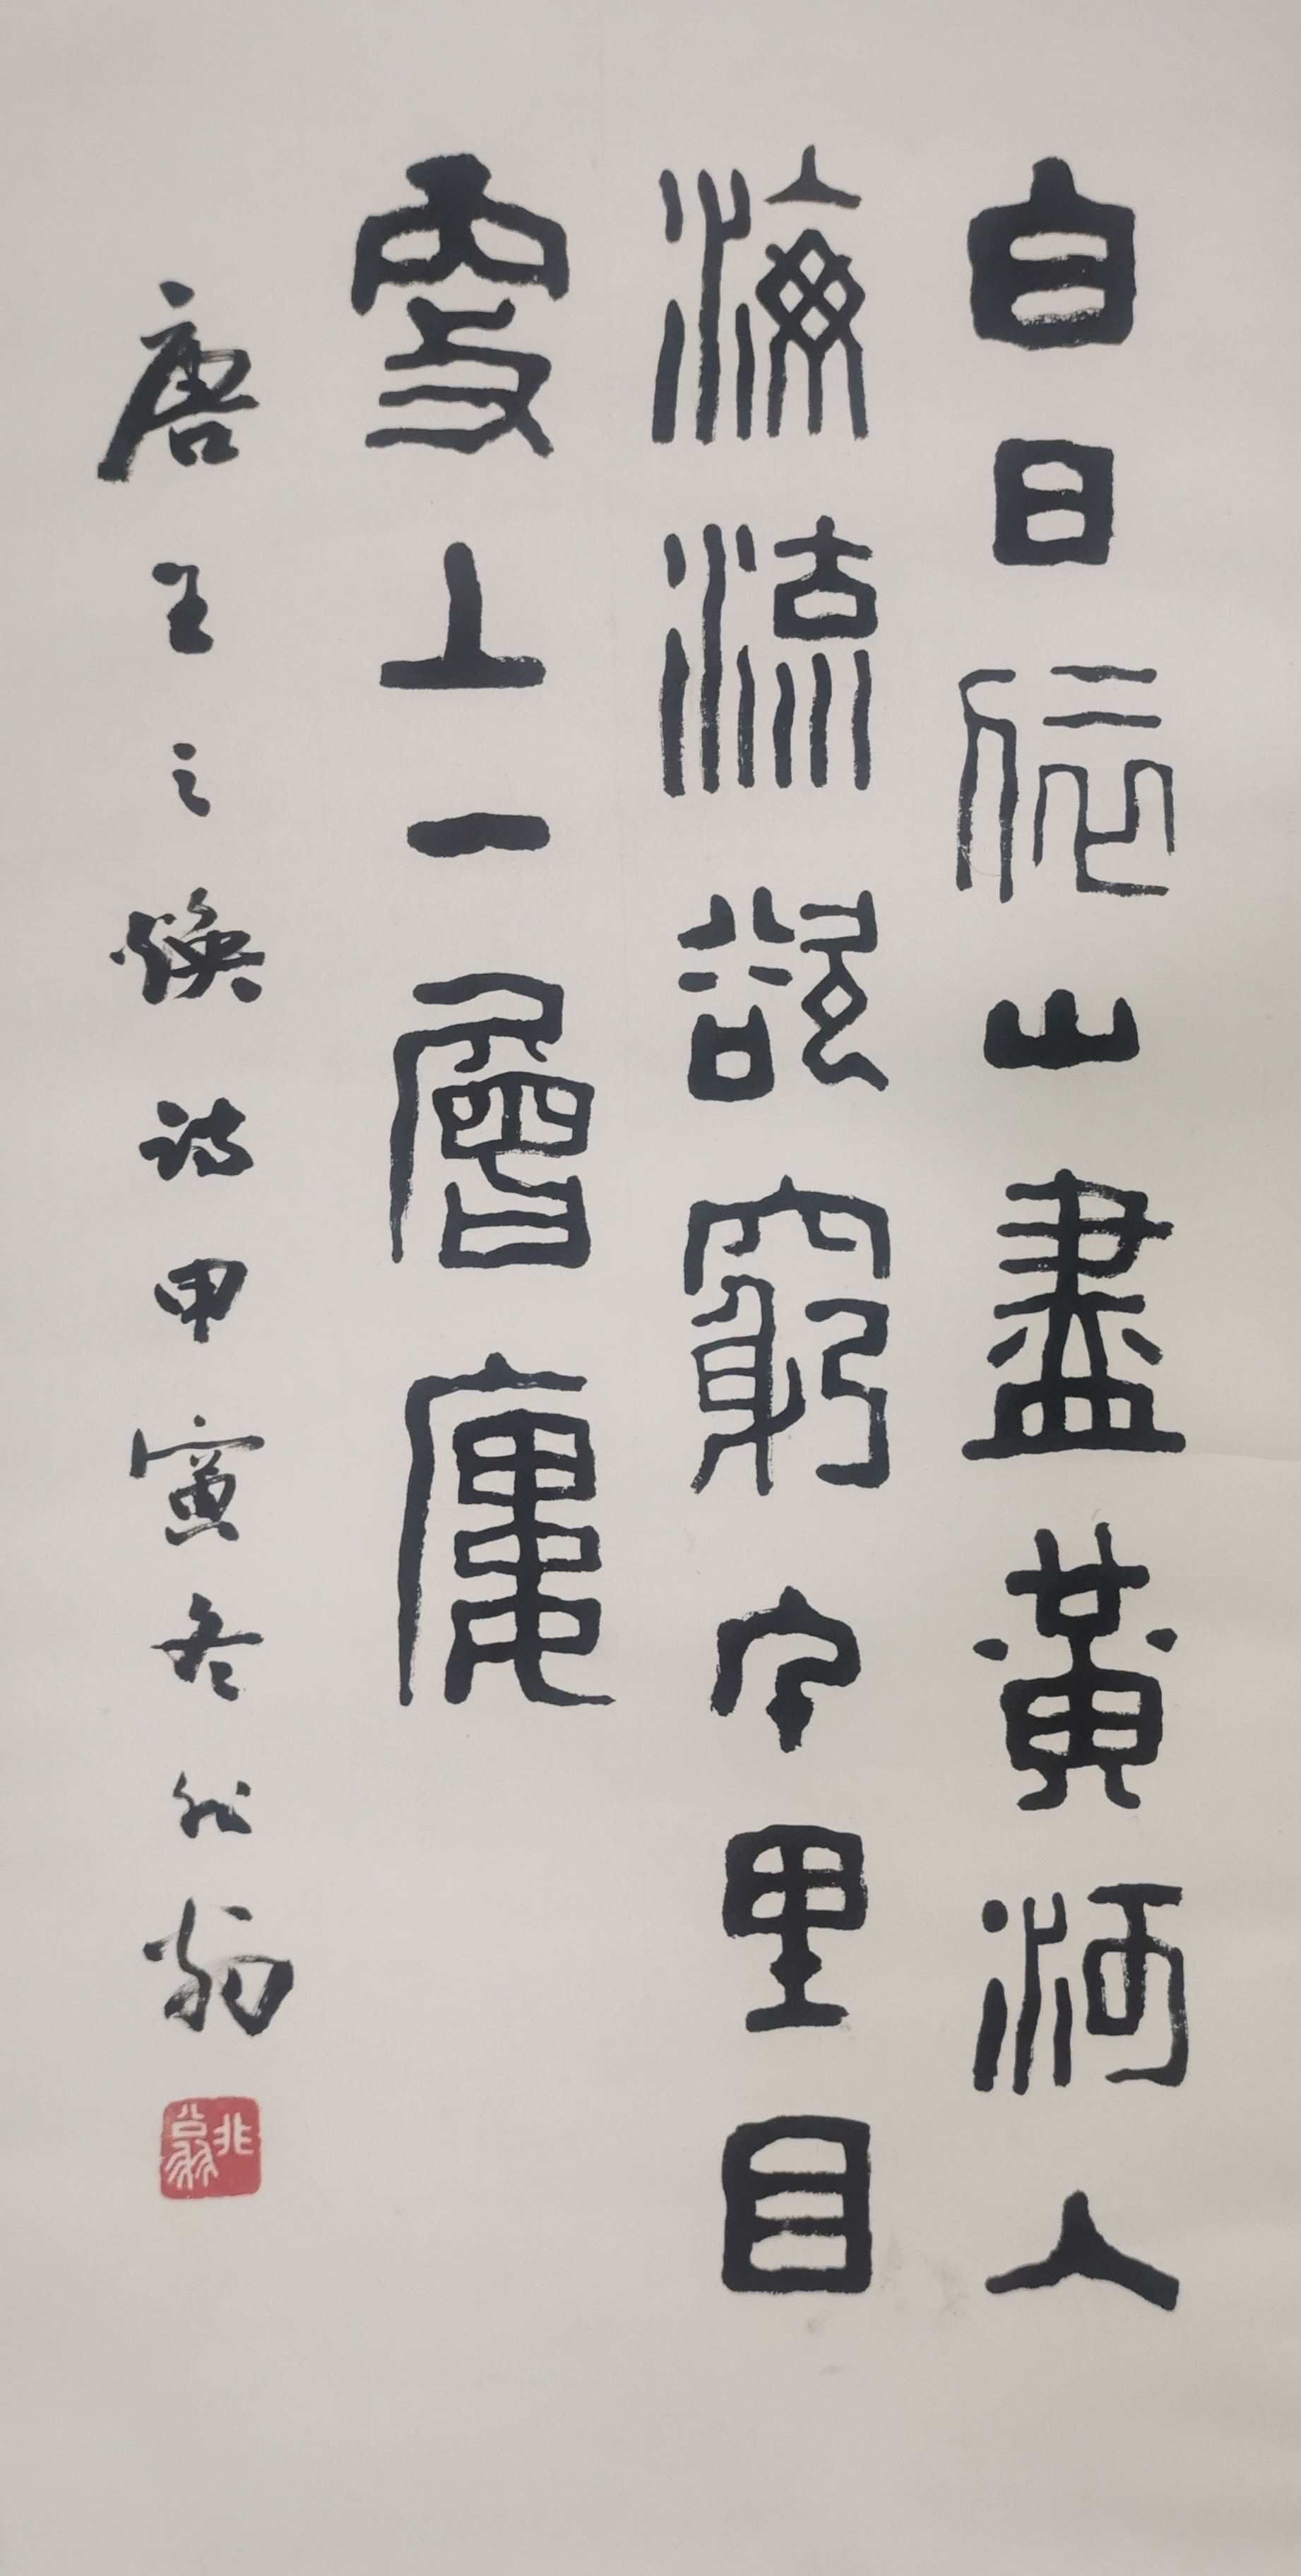 白日依山盡黃河入
海流欲窮千里目
更上一層廔
唐王之煥詩甲寅冬翁
翁